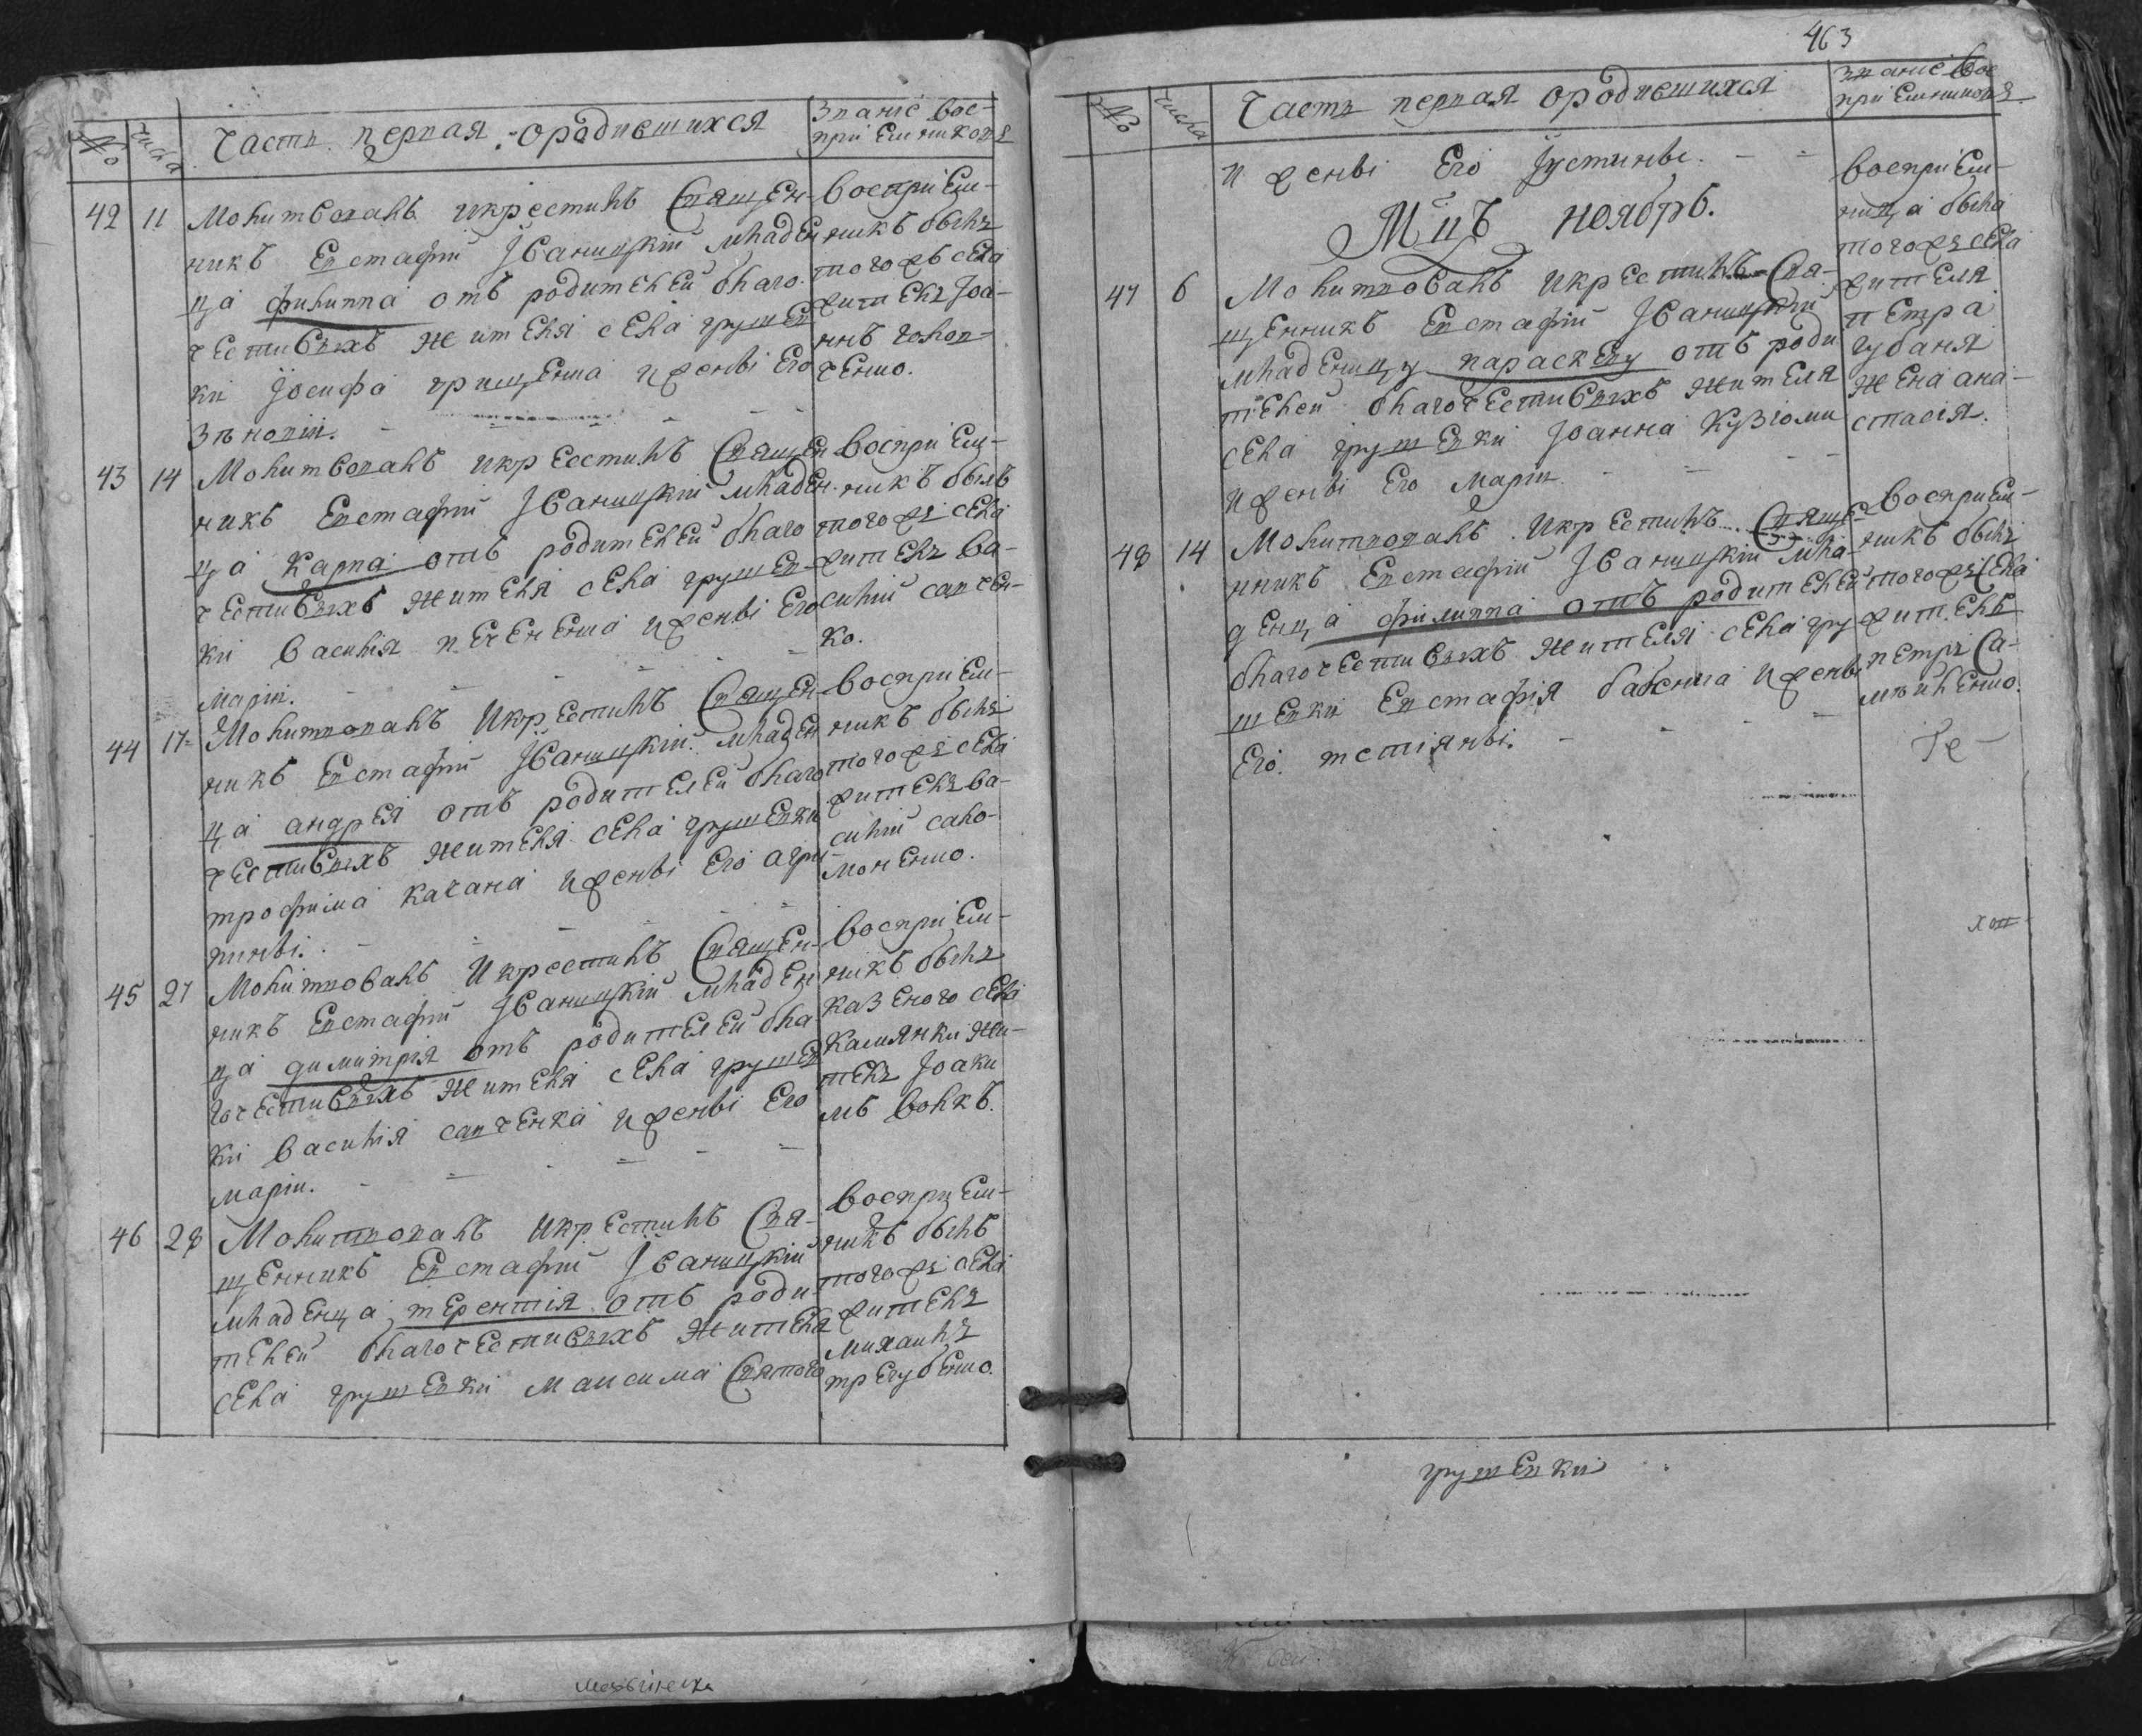 № числа Часть первая о родившихся Званіе вос-
пріемниковъ
42 11 Молитвовалъ и крестилъ Священ-
никъ Евстафій Іваницкій младен
ца филиппа отъ родителей благо-
честивыхъ жителя села грушев
ки Іосифа грищенка и жены Его
Зѣновіи.
Воспріем-
никъ былъ
того жъ села
житель Іоа-
ннъ головченко.
43 14 Молитвовалъ и крестилъ Священ
никъ Евстафій Іваницкій младен-
ца Карпа отъ родителей благо
честивыхъ жителя села грушев-
ки василія печененка и жены Его
маріи.
Воспріем-
никъ былъ
того жъ села
житель ва-
силій савчен-
ко.
44 17 Молитвовалъ и крестилъ Священ
никъ Евстафій Іваницкій младен
ца андрея отъ родителей благо
честивыхъ жителя села грушевки
трофима качана и жены Его агри-
пины.
Воспріем-
никъ былъ
того жъ села
житель ва-
силій сало-
моненко.
45 27 Молитвовалъ и крестилъ Священ-
никъ Евстафій Іваницкій младен
ца димитрія отъ родителей бла
гочестивыхъ жителя села грушев
ки василія савченка и жены Его
маріи.
Воспріем-
никъ былъ
казеного села
камянки жи-
тель Іоаки
мъ волкъ.
46 28 Молитвовалъ и крестилъ Свя-
щенникъ Евстафій Іваницкій
младенца терентія отъ роди
телей благочестивыхъ жителя
села грушевки максима Святого
Воспріем-
никъ былъ
того жъ села
житель
михаилъ
трегубенко.
463
№ числа Часть первая о родившихся Званіе вос
пріемниковъ
и жены Его Іустины.
Мцъ ноябрь.
47 6 Молитвовалъ и крестилъ Свя-
щенникъ Евстафій Іваницкій
младеницу параскеву отъ роди
телей благочестивыхъ жителя
села грушевки Іоанна Кузіоми
и жены Его маріи.
Воспріем-
ница была
того жъ села
жителя
петра
губаня
жена ана-
стасія.
48 14 Молитвовалъ и крестилъ Свяще-
нникъ Евстафій Іваницкій мла-
денца филиппа отъ родителей
благочестивыхъ жителя села гру
шевки Евстафія бабенка и жены
Его тетіяны.
Воспріем-
никъ былъ
того жъ села
житель
петръ Са-
мойленко.
грушевки